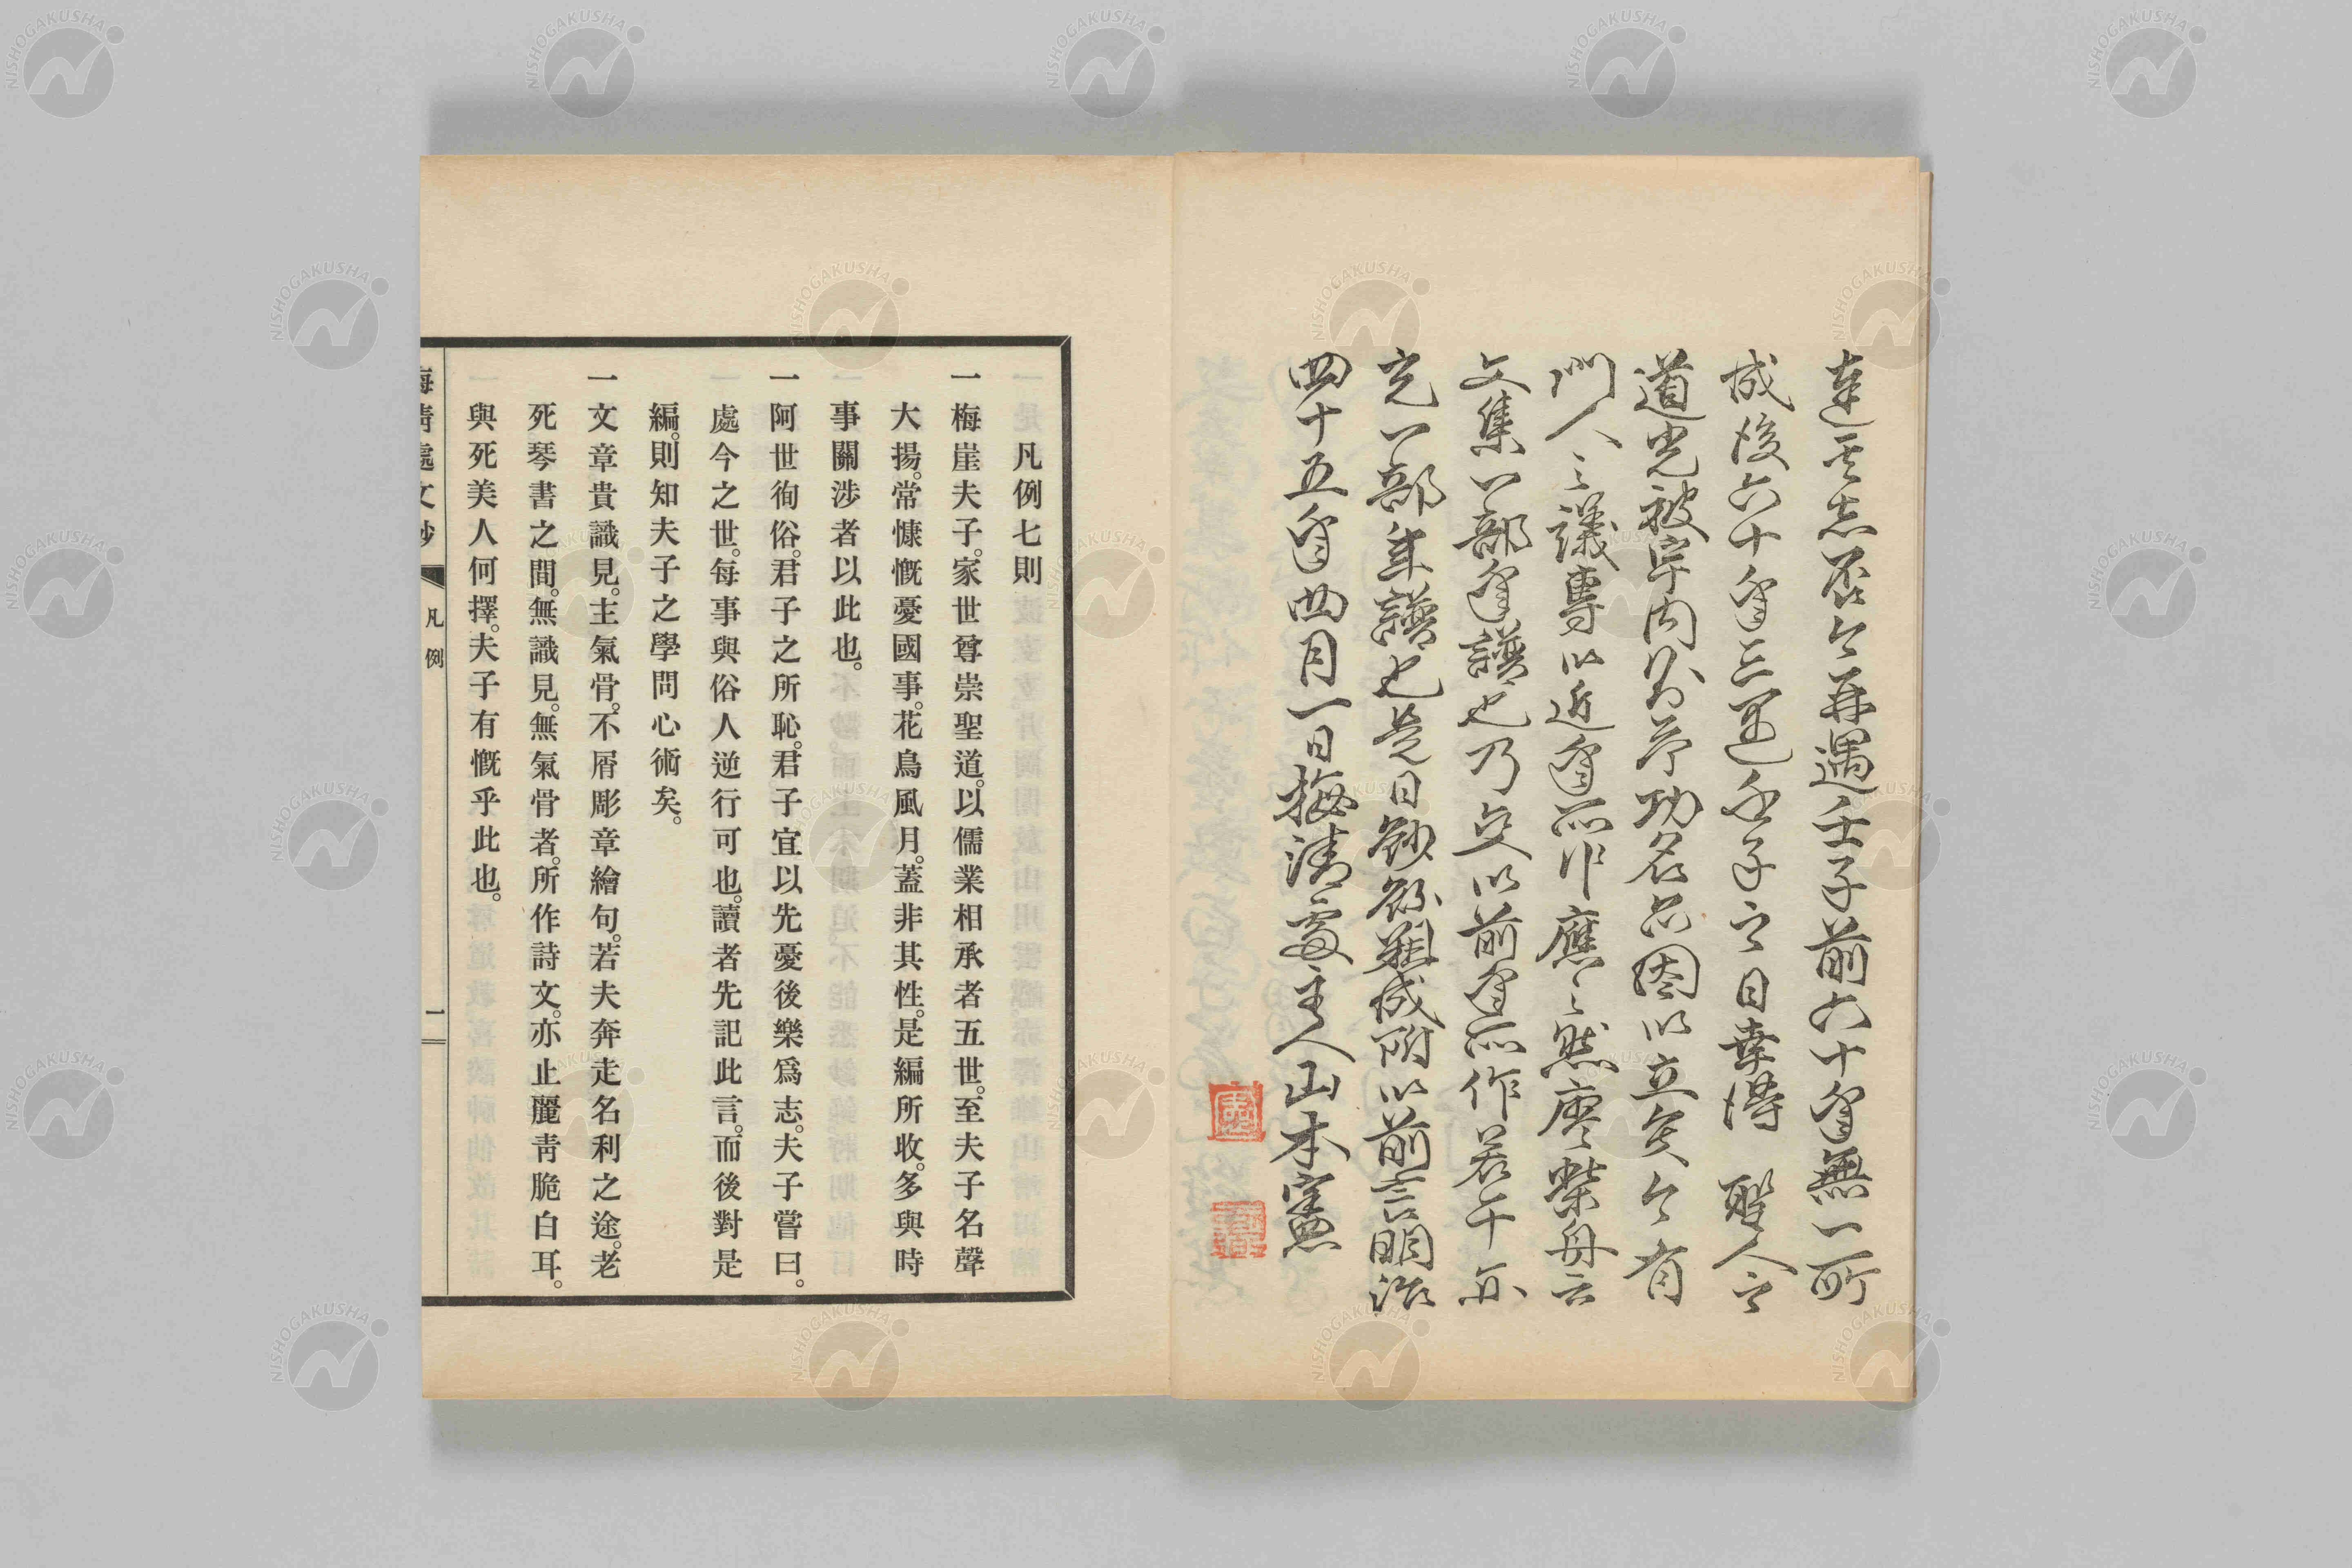 達其志否今再遇壬子前六十年無一所
成後六十年三遇壬子之日幸得 聖人之
道光被宇内則予功名亦因以立矣今有
門人之議專以近年所作應之然廖柴舟云
文集一部年譜也乃文以前年所作若干亦
充一部年譜也是日鈔錄粗成附以前言明治
四十五年四月一日梅清處主人山本憲
凡例七則
一梅崖夫子。家世尊崇聖道。以儒業相承者五世。至夫子名聲
大揚。常慷慨憂國事。花鳥風月。蓋非其性。是編所收。多與時
事關涉者以此也。
一阿世徇俗。君子之所恥。君子宜以先憂後樂爲志。夫子嘗曰。
處今之世。每事與俗人逆行可也。讀者先記此言。而後對是
編。則知夫子之學問心術矣。
一文章貴識見。主氣骨。不屑彫章繪句。若夫奔走名利之途。老
死琴書之間。無識見。無氣骨者。所作詩文。亦止麗靑脆白耳。
與死美人何擇。夫子有慨乎此也。
梅淸處文鈔
凡例
一
NISHOGAKUSHA